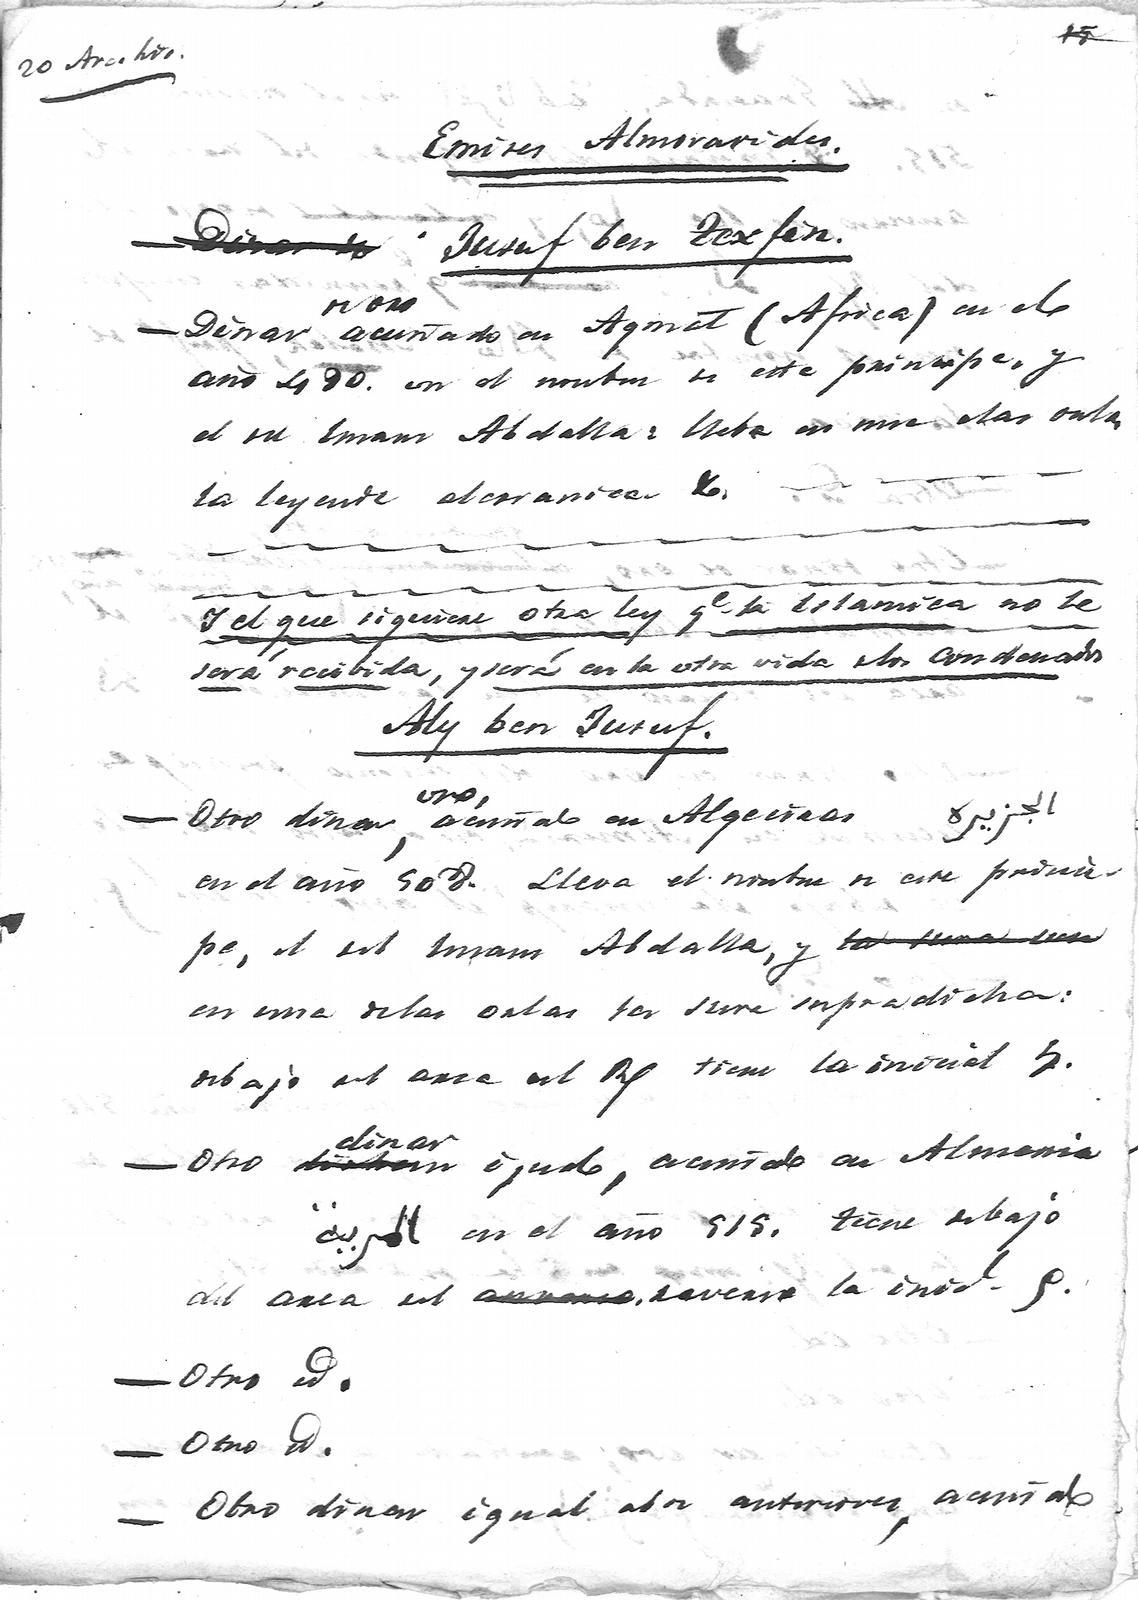 20 Archivo.
15
Emires Almoravides.
Dinar de Jusuf ben Texfin.
de oro
— Dinar acuñado en Agmat (Africa) en el
año 490. en el nombre de este principe, y
el del Imam Abdalla: lleba en una de las orlas
la leyenda alcoranica &.
Y el que siguiese otra ley qe la Islamica no le
será recibida, y será en la otra vida de los condenados
Aly ben Jusuf.
oro,
— Otro dinar, acuñado en Algeciras الجزيرة
en el año 508. Lleva el nombre de este princi-
pe, el del Imam Abdalla, y la sura
en una de las orlas la sura supradicha:
debajo del area del Rf tiene la inicial
dinar
— Otro dirhem igual, acuñado en Almeria
المرية en el año 515. tiene debajo
del area del anverso, reverso la inicl.
— Otro id.
— Otro id.
— Otro dinar igual a los anteriores, acuñado